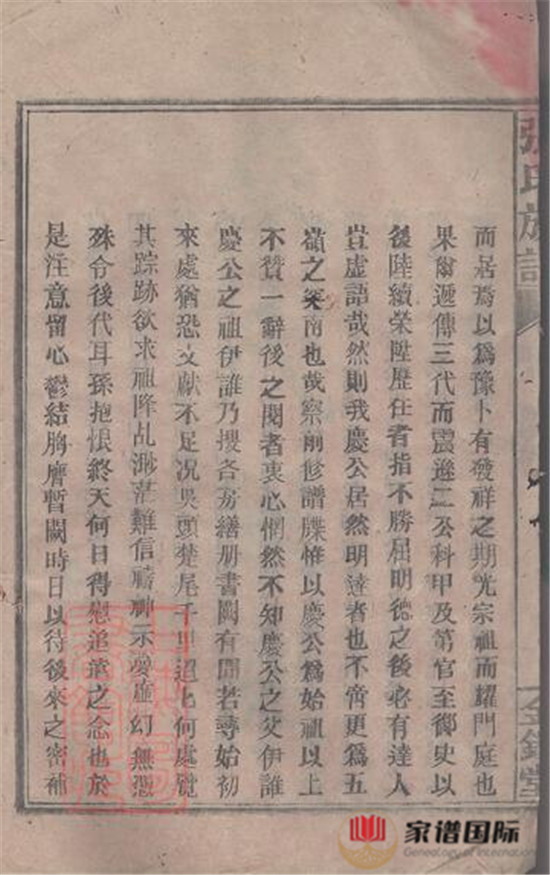 而居焉以爲豫卜有發祥之期光宗祖而耀門庭也
果爾遞傳三代而震遜二公科甲及第官至御史以
後陸續榮陞歷任者指不勝屈明德之後必有達人
豈虛語哉然則我慶公居然明達者也不啻更爲五
嶺之梁南也哉察前修譜牒惟以慶公爲始祖以上
不贊一辭後之閱者衷心惘然不知慶公之父伊誰
慶公之祖伊誰乃搜各房繕册書閱有聞若尋始初
來處猶恐文獻不足况吳頭楚尾千里迢上何處覓
其踪跡欲求祖降乩渺茫難信禱神示夢虛幻無憑
殊令後代耳孫抱恨終天何日得慰追遠之念也於
是注意留心鬱結胸膺暫闕時日以待後來之密補
張氏族譜
金鑑堂
家谱国际
Genealogy of International